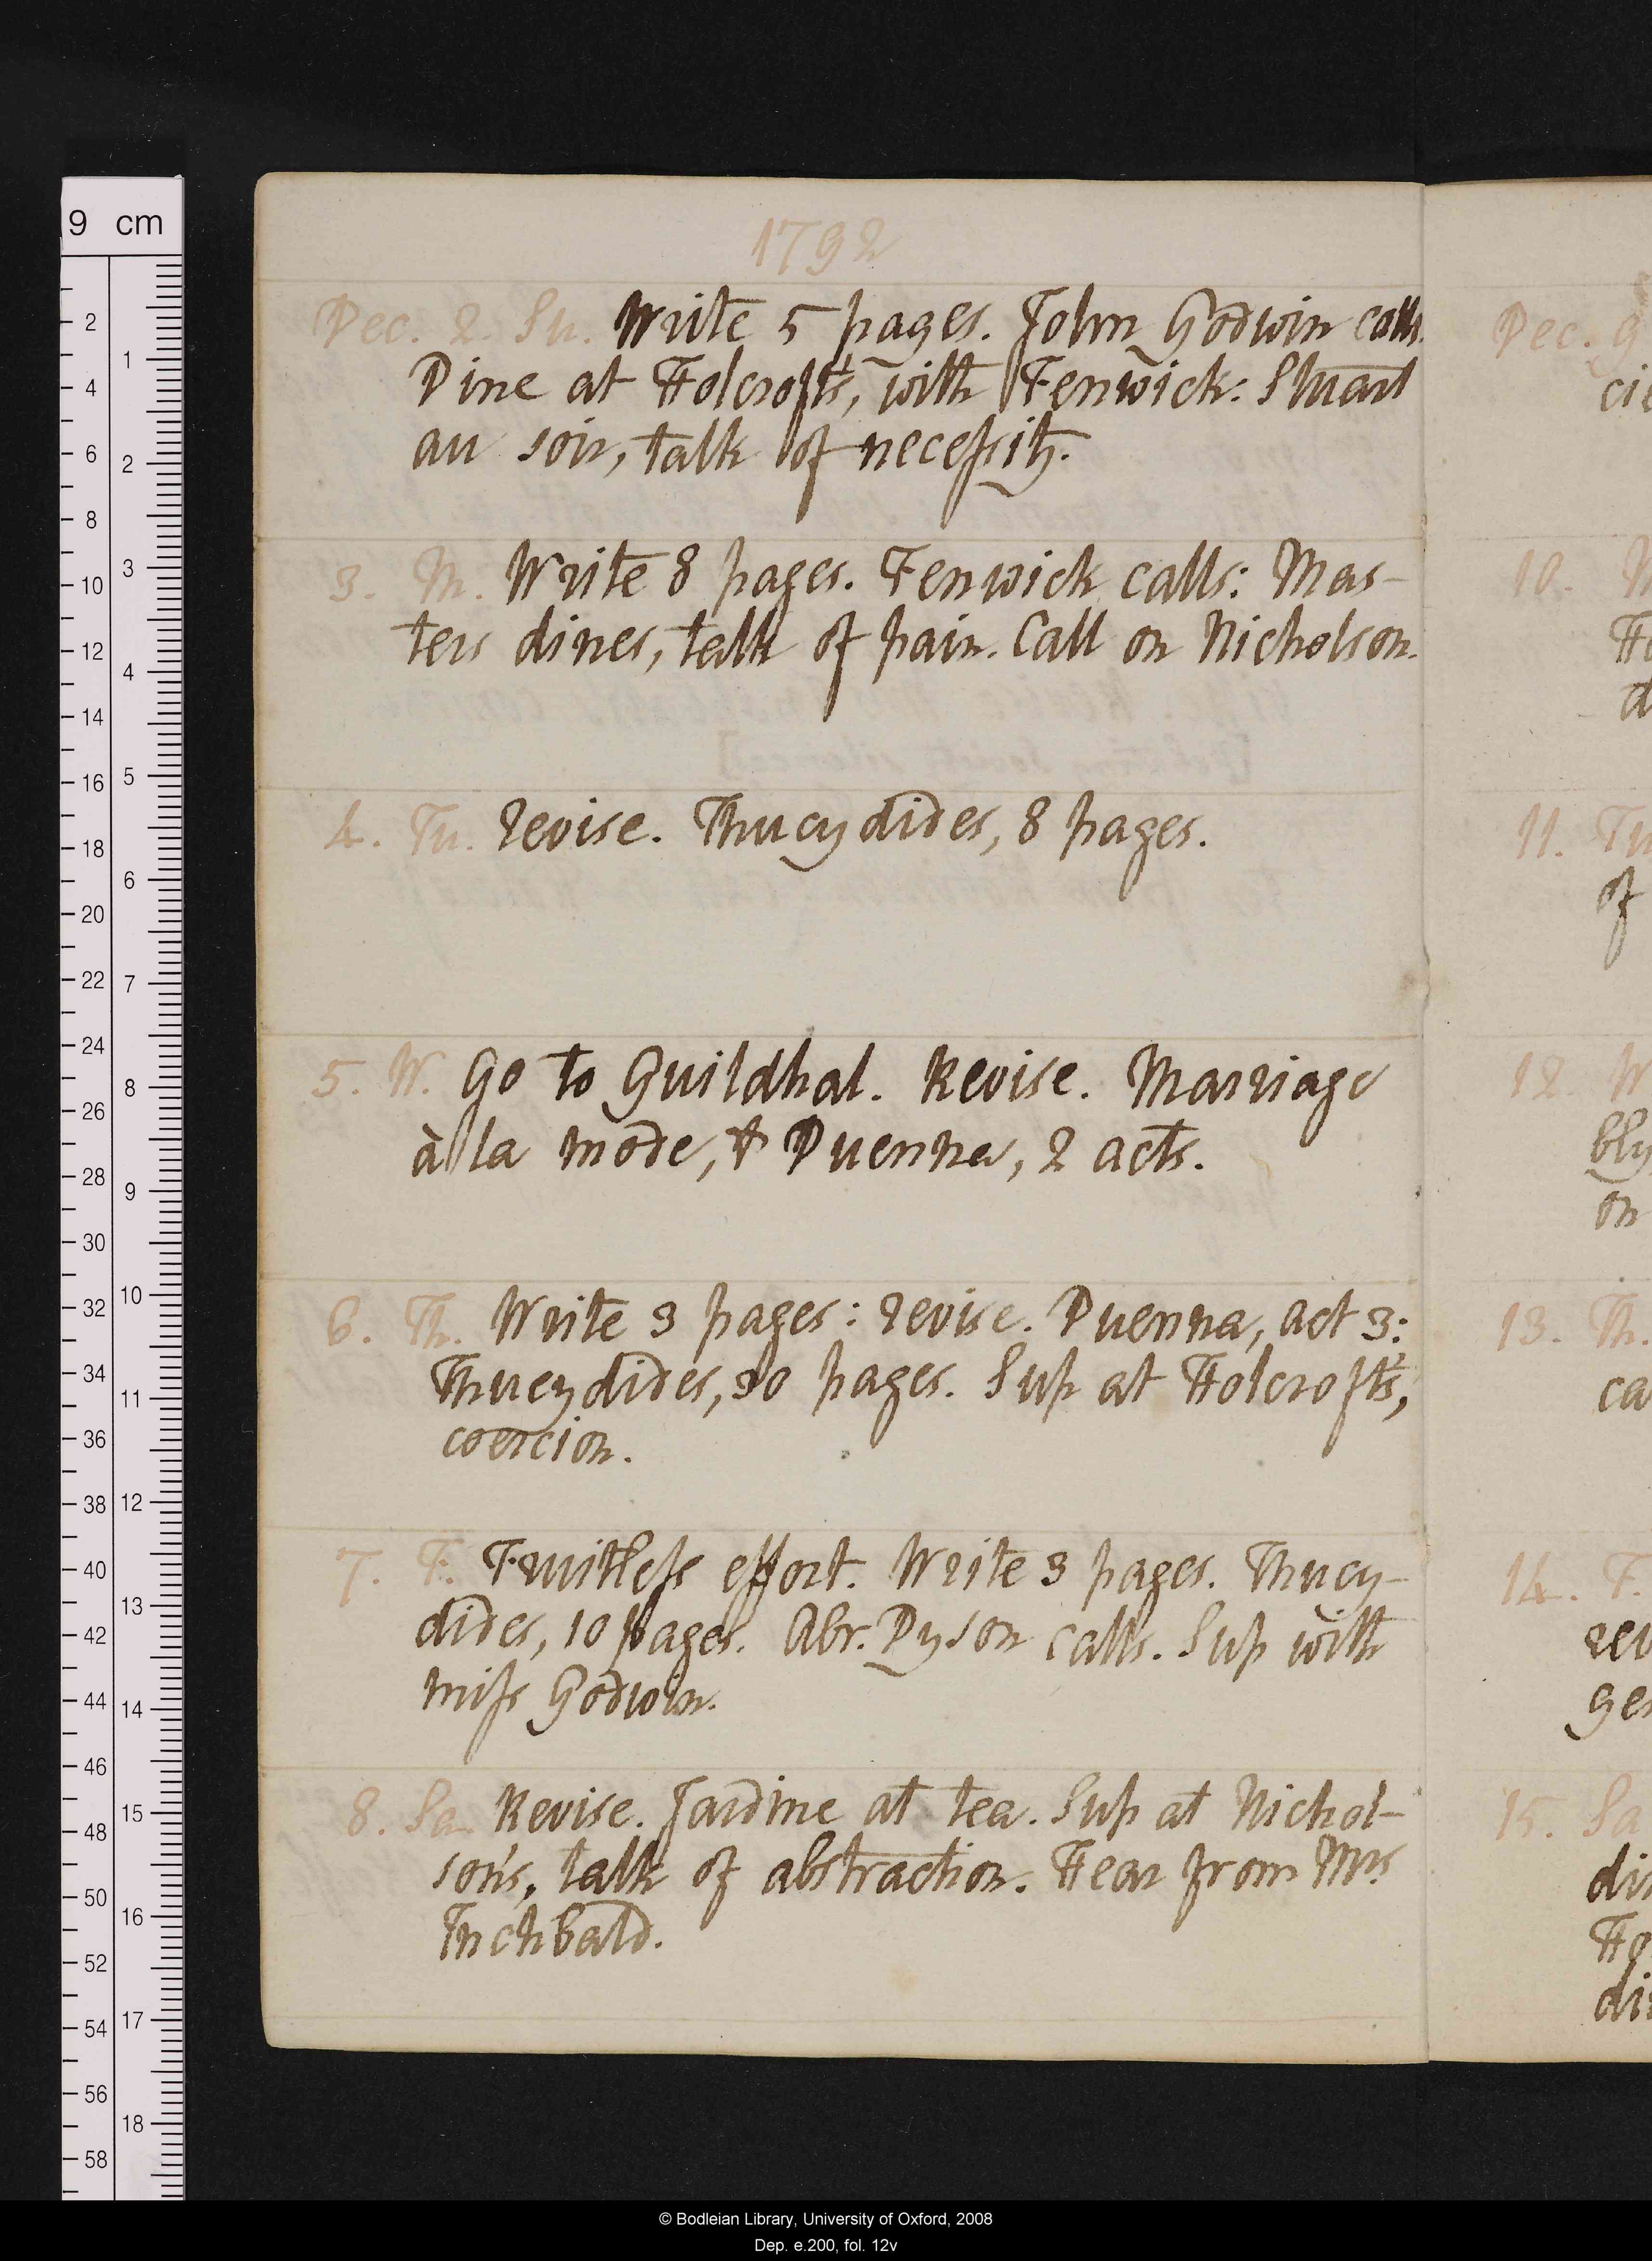 1792
Dec. 2. Su. Write 5 pages. John Godwin calls.
Dine at Holcroft's, with Fenwick: Stuart
au soir, talk of necessity.
3. M. Write 8 pages. Fenwick calls: Mas-
ters dines, talk of pain. Call on Nicholson.
4. Tu. revise. Thucydides, 8 pages.
5. W. Go to Guildhal. Revise. Marriage
à la mode, & Duenna, 2 acts.
6. Th. Write 3 pages: revise. Duenna, act 3:
Thucydides, 30 pages. Sup at Holcroft's,
coercion.
7. F. Fruitless effort. Write 3 pages. Thucy-
dides, 10 pages. Abr. Dyson calls. Sup with
miss Godwin.
8. Sa. Revise. Jardine at tea. Sup at Nichol-
son's, talk of abstraction. Hear from Mrs
Inchbald.
Dec. 9
10.
11. Tu
of
12. W
bly
on
13. Th.
ca
14. F.
rev
ges
15. Sa
Ho
9 cm
2
4
6
8
10
12
14
16
18
20
22
24
26
28
30
32
34
36
38
40
42
44
46
48
50
52
54
56
58
1
2
3
4
5
6
7
8
9
10
11
12
13
14
15
16
17
18
© Bodleian Library, University of Oxford, 2008
Dep. e.200, fol. 12v